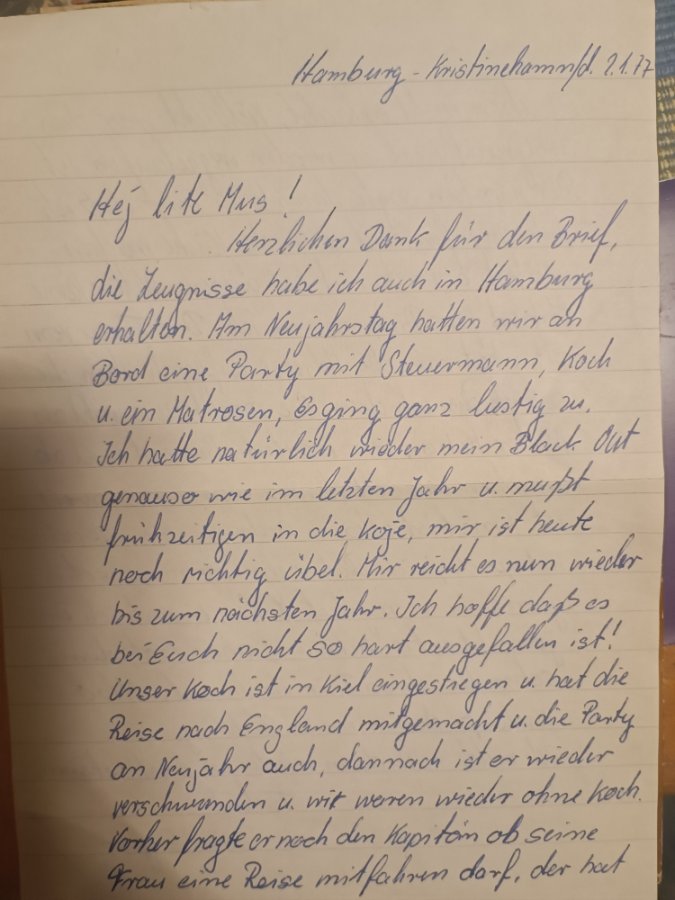 Hamburg - Kristinehamn/d. 2.1.77
Hej lite Mus!
Herzlichen Dank für den Brief,
die Zeugnisse habe ich auch in Hamburg
erhalten. Am Neujahrstag hatten wir an
Bord eine Party mit Steuermann, Koch
u. ein Matrosen, Es ging ganz lustig zu.
Ich hatte natürlich wieder mein Black Out
genauso wie im letzten Jahr u. mußt
frühzeitigen in die Koje, mir ist heute
noch richtig übel. Mir reicht es nun wieder
bis zum nächsten Jahr. Ich hoffe daß es
bei Euch nicht so hart ausgefallen ist!
Unser Koch ist in Kiel eingestiegen u. hat die
Reise nach England mitgemacht u. die Party
an Neujahr auch, dannach ist er wieder
verschwunden u. wir waren wieder ohne Koch.
Vorher fragte er noch den Kapitän ob seine
Frau eine Reise mitfahren darf, der hat